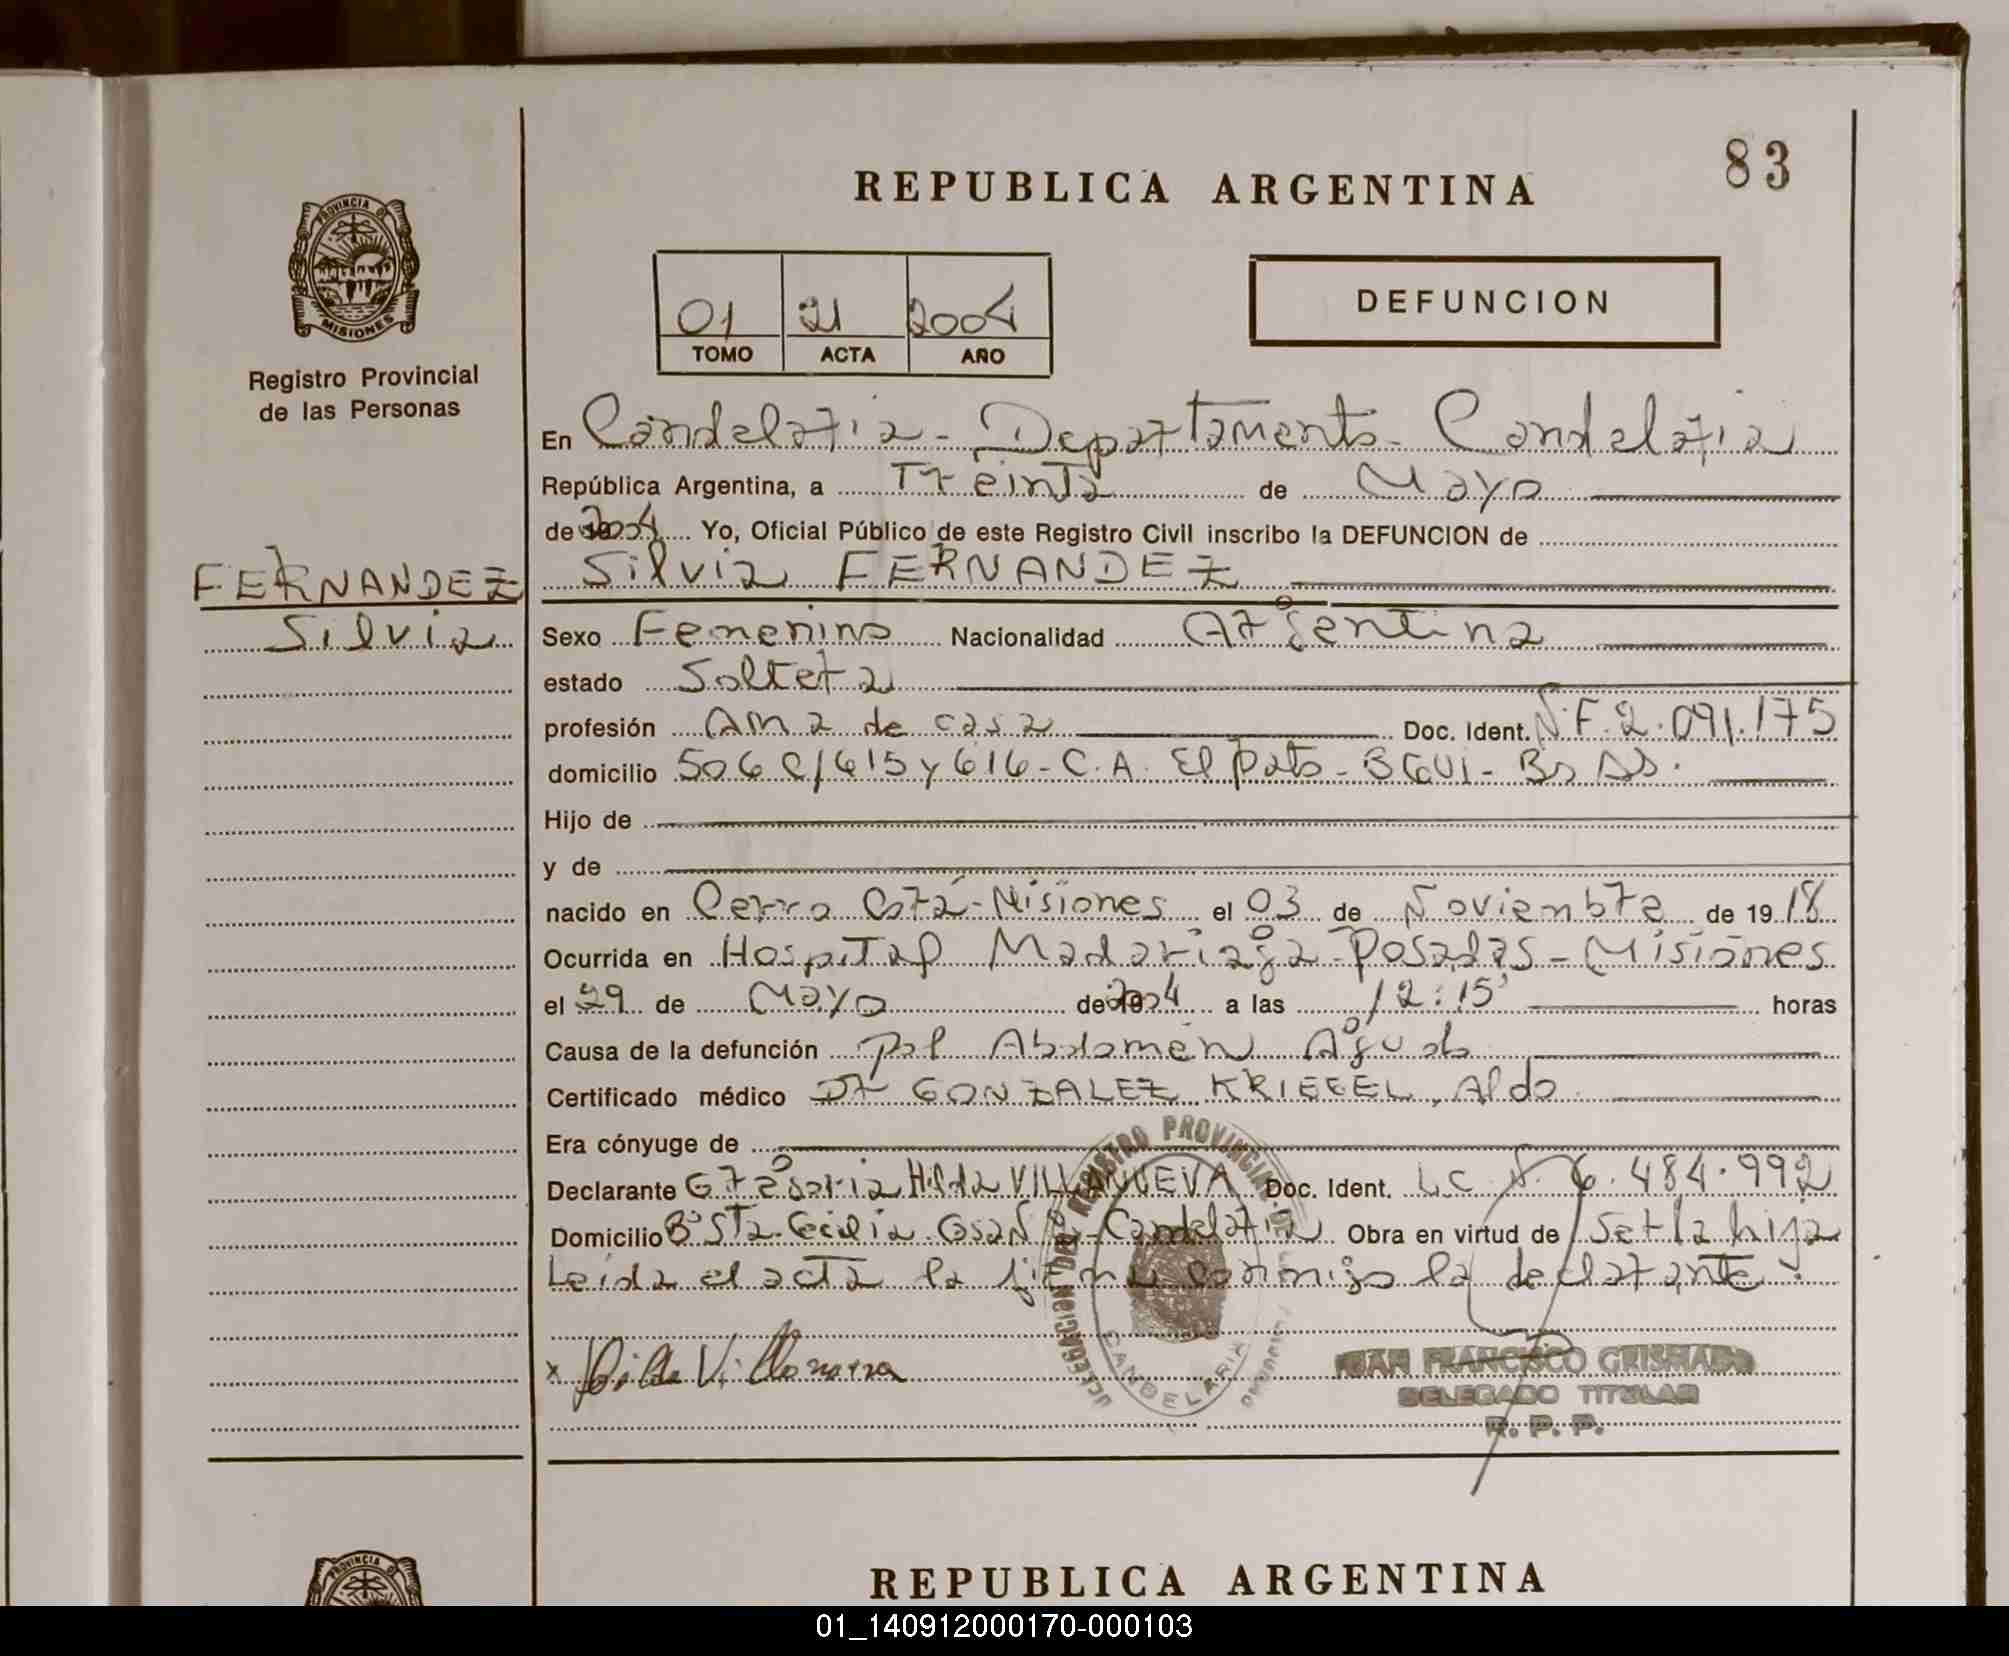 83
REPUBLICA ARGENTINA
PROVINCIA DE
MISIONES
Registro Provincial
de las Personas
01 21 2004
TOMO ACTA AÑO
DEFUNCION
En Candelaria - Departamento Candelaria
República Argentina, a Treinta de Mayo
de 2004 Yo, Oficial Público de este Registro Civil inscribo la DEFUNCION de
FERNANDEZ
Silvia
Silvia FERNANDEZ
Sexo Femenino Nacionalidad Argentina
estado Soltera
profesión Ama de casa Doc. Ident. N.F. 2.091.175
domicilio 506 C/ 615 y 616 - C.A. El Pato - BGUI - Bs As.
Hijo de
y de
nacido en Cerro Corá - Misiones el 03 de Noviembre de 1918
Ocurrida en Hospital Madariaga - Posadas - Misiones
el 29 de Mayo de 2004 a las 12:15' horas
Causa de la defunción por Abdomen Agudo
Certificado médico Dr GONZALEZ KRIEGEL, Aldo
Era cónyuge de
Declarante Gregoria Hilda VILLANUEVA Doc. Ident. L.C. N. 6.484.992
Domicilio B° Sta. Cecilia - Candelaria Obra en virtud de Ser la hija
Leida el acta la firma conmigo la declarante.
x Hilda Villanueva
DELEGACION DEL REGISTRO PROVINCIAL DE
CANDELARIA
JUAN FRANCISCO GRISMADO
DELEGADO TITULAR
R. P. P.
PROVINCIA DE
REPUBLICA ARGENTINA
01_140912000170-000103